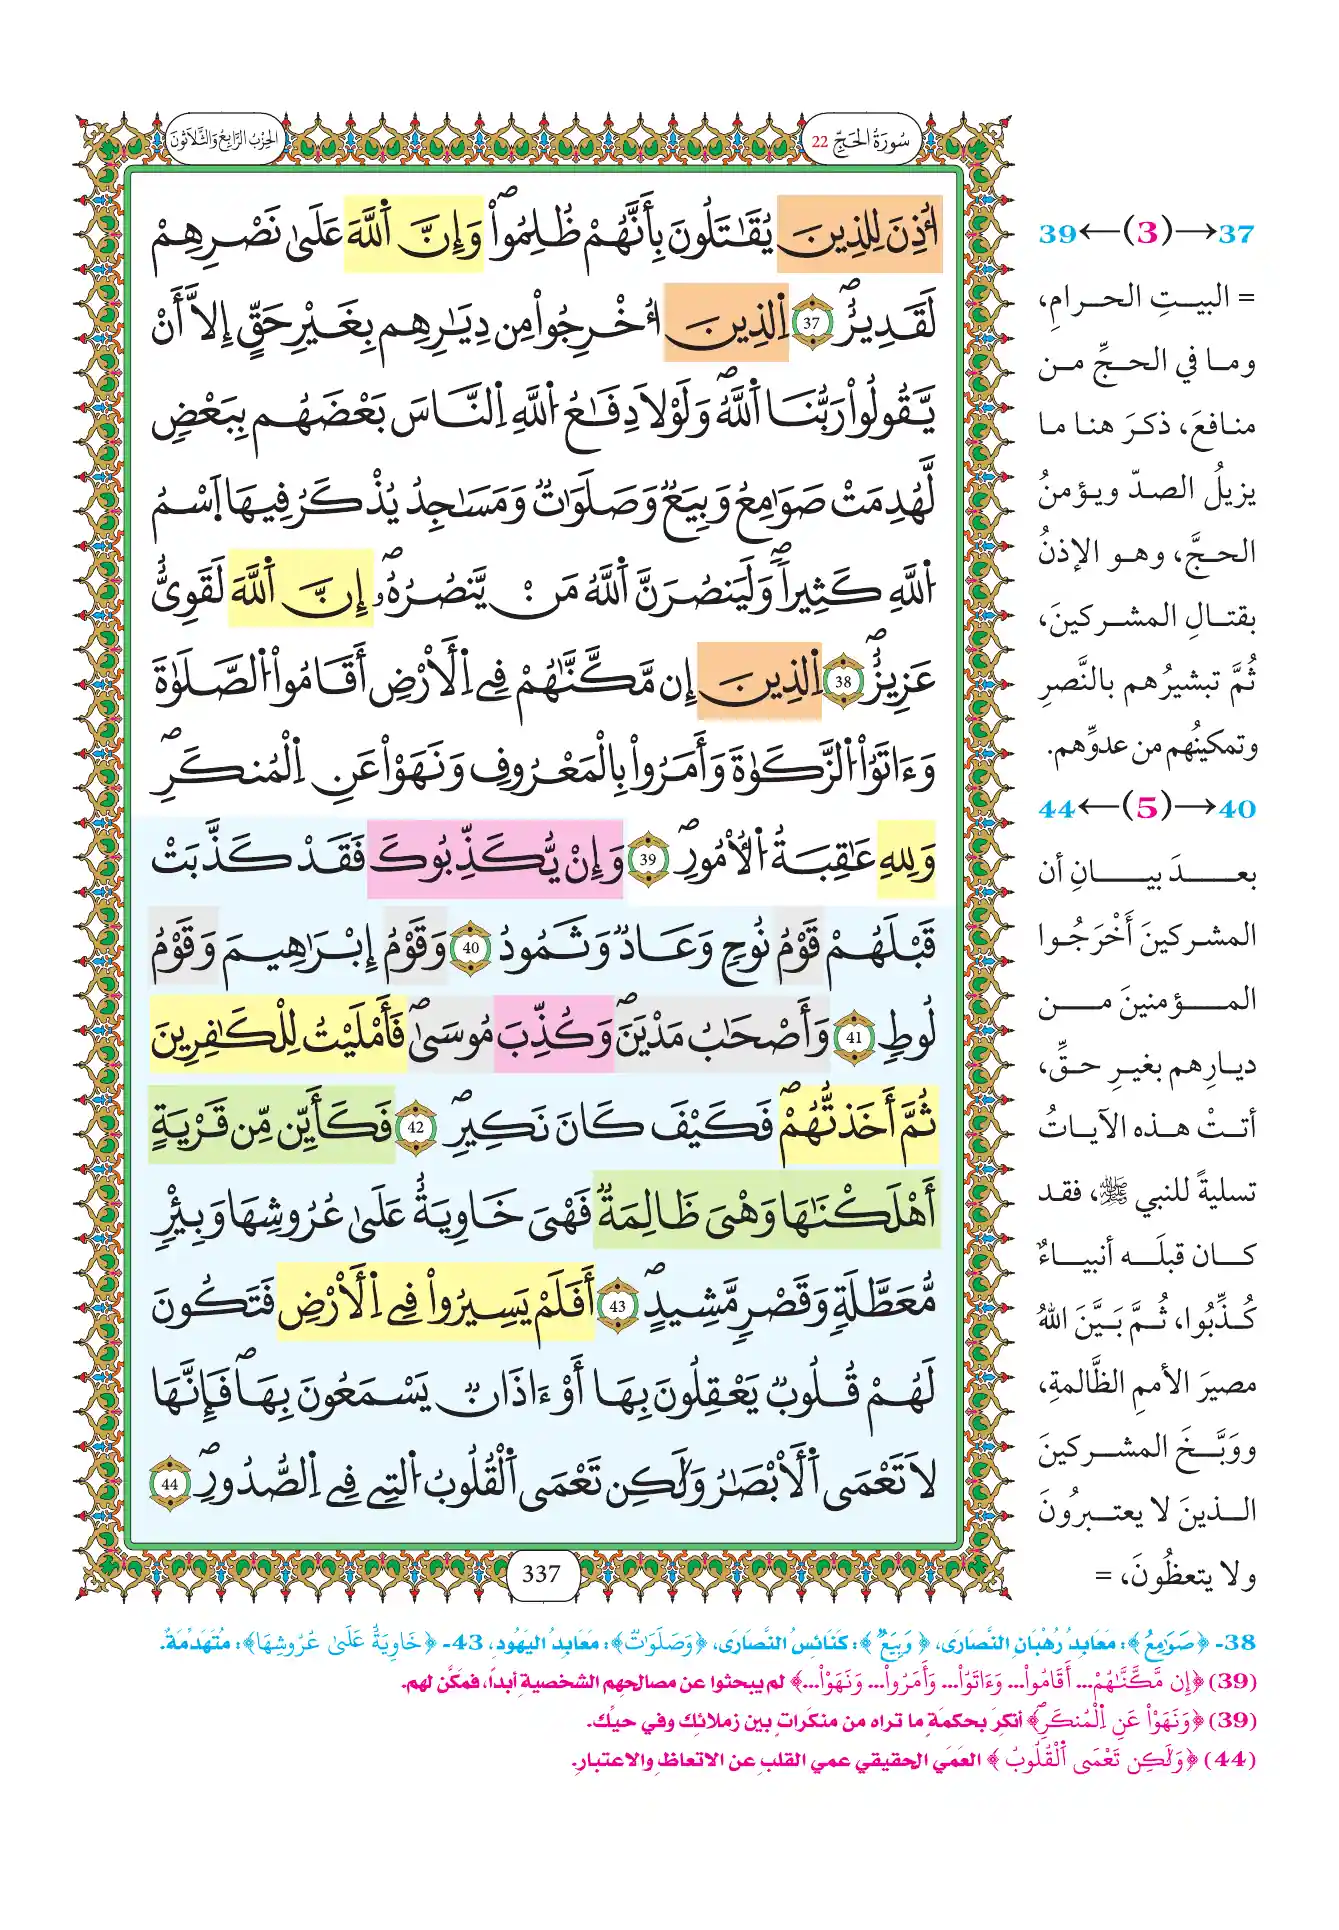 سُورَةُ الحَجِّ 22
الحِزْبُ الرَّابِعُ وَالثَّلَاثُونَ
اُذِنَ لِلذِينَ يُقَٰتَلُونَ بِأَنَّهُمْ ظُلِمُواْۖ وَإِنَّ اَ۬للَّهَ عَلَىٰ نَصْرِهِمْ
لَقَدِيرٌۖ 37 اِ۬لذِينَ أُخْرِجُواْ مِن دِيَٰرِهِم بِغَيْرِ حَقٍّ إِلَّا أَنْ
يَّقُولُواْ رَبُّنَا اَ۬للَّهُۖ وَلَوْلَا دِفَٰعُ اُ۬للَّهِ اِ۬لنَّاسَ بَعْضَهُم بِبَعْضٖ
لَّهُدِمَتْ صَوَٰمِعُ وَبِيَعٞ وَصَلَوَٰتٞ وَمَسَٰجِدُ يُذْكَرُ فِيهَا اَ۪سْمُ
اُ۬للَّهِ كَثِيراٗۖ وَلَيَنصُرَنَّ اَ۬للَّهُ مَنْ يَّنصُرُهُۥۖ إِنَّ اَ۬للَّهَ لَقَوِيٌّ
عَزِيزٌۖ 38 اِ۬لذِينَ إِن مَّكَّنَّٰهُمْ فِے اِ۬لَارْضِ أَقَامُواْ اُ۬لصَّلَوٰةَ
وَءَاتَوُاْ اُ۬لزَّكَوٰةَ وَأَمَرُواْ بِالْمَعْرُوفِ وَنَهَوْاْ عَنِ اِ۬لْمُنكَرِۖ
وَلِلهِ عَٰقِبَةُ اُ۬لُامُورِۖ 39 وَإِنْ يُّكَذِّبُوكَ فَقَدْ كَذَّبَتْ
قَبْلَهُمْ قَوْمُ نُوحٖ وَعَادٞ وَثَمُودُ 40 وَقَوْمُ إِبْرَٰهِيمَ وَقَوْمُ
لُوطٖ 41 وَأَصْحَٰبُ مَدْيَنَۖ وَكُذِّبَ مُوسَىٰۖ فَأَمْلَيْتُ لِلْكَٰفِرِينَ
ثُمَّ أَخَذتُّهُمْۖ فَكَيْفَ كَانَ نَكِيرِۖ 42 فَكَأَيِّن مِّن قَرْيَةٍ
أَهْلَكْنَٰهَا وَهْيَ ظَالِمَةٞ فَهْيَ خَاوِيَةٌ عَلَىٰ عُرُوشِهَا وَبِئْرٖ
مُّعَطَّلَةٖ وَقَصْرٖ مَّشِيدٍۖ 43 أَفَلَمْ يَسِيرُواْ فِے اِ۬لَارْضِ فَتَكُونَ
لَهُمْ قُلُوبٞ يَعْقِلُونَ بِهَا أَوْ ءَاذَانٞ يَسْمَعُونَ بِهَاۖ فَإِنَّهَا
لَا تَعْمَى اَ۬لَابْصَٰرُ وَلَٰكِن تَعْمَى اَ۬لْقُلُوبُ اُ۬لتِے فِے اِ۬لصُّدُورِۖ 44
337
37→(3)←39
= البيتِ الحرامِ،
وما في الحجِّ من
منافعَ، ذكرَ هنا ما
يزيلُ الصدّ ويؤمنُ
الحجَّ، وهو الإذنُ
بقتالِ المشركينَ،
ثُمَّ تبشيرُهم بالنَّصرِ
وتمكينُهم من عدوِّهم.
40→(5)←44
بعدَ بيانِ أن
المشركينَ أَخْرَجُوا
المؤمنينَ من
ديارِهم بغيرِ حقٍّ،
أتتْ هذه الآياتُ
تسليةً للنبي ﷺ، فقد
كان قبلَه أنبياءٌ
كُذِّبُوا، ثُمَّ بَيَّنَ اللهُ
مصيرَ الأممِ الظَّالمةِ،
ووَبَّخَ المشركينَ
الذينَ لا يعتبرُونَ
ولا يتعظُونَ، =
38- ﴿صَوَٰمِعُ﴾: مَعَابِدُ رُهْبَانِ النَّصَارَى، ﴿وَبِيَعٞ﴾: كَنَائِسُ النَّصَارَى، ﴿وَصَلَوَٰتٞ﴾: مَعَابِدُ اليَهُودِ، 43- ﴿خَاوِيَةٌ عَلَىٰ عُرُوشِهَا﴾: مُتَهَدِّمَةٌ.
(39) ﴿إِن مَّكَّنَّٰهُمْ... أَقَامُواْ... وَءَاتَوُاْ... وَأَمَرُواْ... وَنَهَوْاْ...﴾ لم يبحثوا عن مصالحهِم الشخصيةِ أبداً، فمَكَّن لهم.
(39) ﴿وَنَهَوْاْ عَنِ اِ۬لْمُنكَرِۖ﴾ أنكِرَ بحكمَةٍ ما تراه من منكَراتٍ بين زملائِك وفي حيِّك.
(44) ﴿وَلَٰكِن تَعْمَى اَ۬لْقُلُوبُ﴾ العَمَي الحقيقي عمي القلبِ عن الاتعاظِ والاعتبارِ.